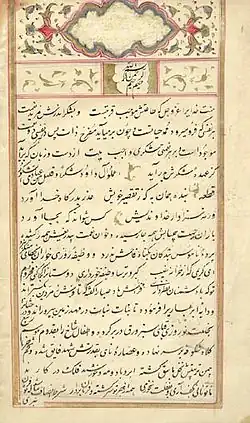 بسم الله الرحمن الرحیم
منت خدایرا عز و جل که طاعتش موجب قربتست و بشکر اندرش مزید نعمت
هر نفسی که فرو میرود ممد حیاتست و چون بر میاید مفرح ذات پس در هر نفسی دو نعمت
موجود است و بر هر نعمتی شکری واجب بیت از دست و زبان که برآید
کز عهده شکرش بدر آید اعملوا آل داود شکرا و قلیل من عبادی الشکور
قطعه بنده همان به که ز تقصیر خویش عذر بدرگاه خدا آورد
ورنه سزاوار خداوندیش کس نتواند که بجا آورد
باران رحمت بیحسابش همه را رسیده و خوان نعمت بیدریغش همه جا کشیده
پرده ناموس بندگان بگناه فاحش ندرد و وظیفه روزی
ای کریمی که از خزانه غیب گبر و ترسا وظیفه خور داری دوستانرا کجا کنی محروم
تو که با دشمنان نظر داری فراش باد صبا را گفته تا فرش زمردین بگستراند
و دایه ابر بهاریرا فرموده تا بنات نبات در مهد زمین بپروراند درختانرا
بخلعت نوروزی قبای سبز ورق در بر کرده و اطفال شاخ را بقدوم
کلاه شکوفه بر سر نهاده و عصاره نایی بقدرتش شهد فایق شده و تخم
نخل باسق گشته ابر و باد و مه و خورشید و فلک در کارند
تا تو نانی بکف آری و بغفلت نخوری همه از بهر تو سرگشته و فرمانبردار شرط انصاف نباشد که تو فرمان
نبری